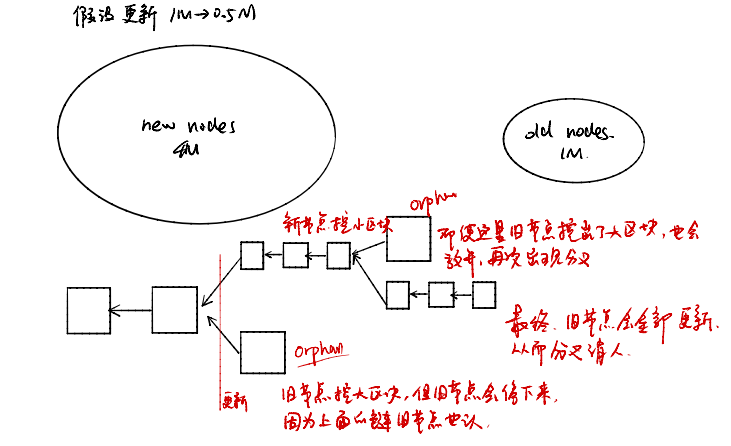 假设更新 1M→0.5M
new nodes
4M
old nodes.
1M.
orphan
新节点挖小区块
即使还是旧节点挖出了大区块,也会
放弃,再次出现分叉
最终.旧节点会全部更新.
从而分叉消人.
orphan
更新
旧节点挖大区块,但旧节点会停下来,
因为上面的链旧节点也认.